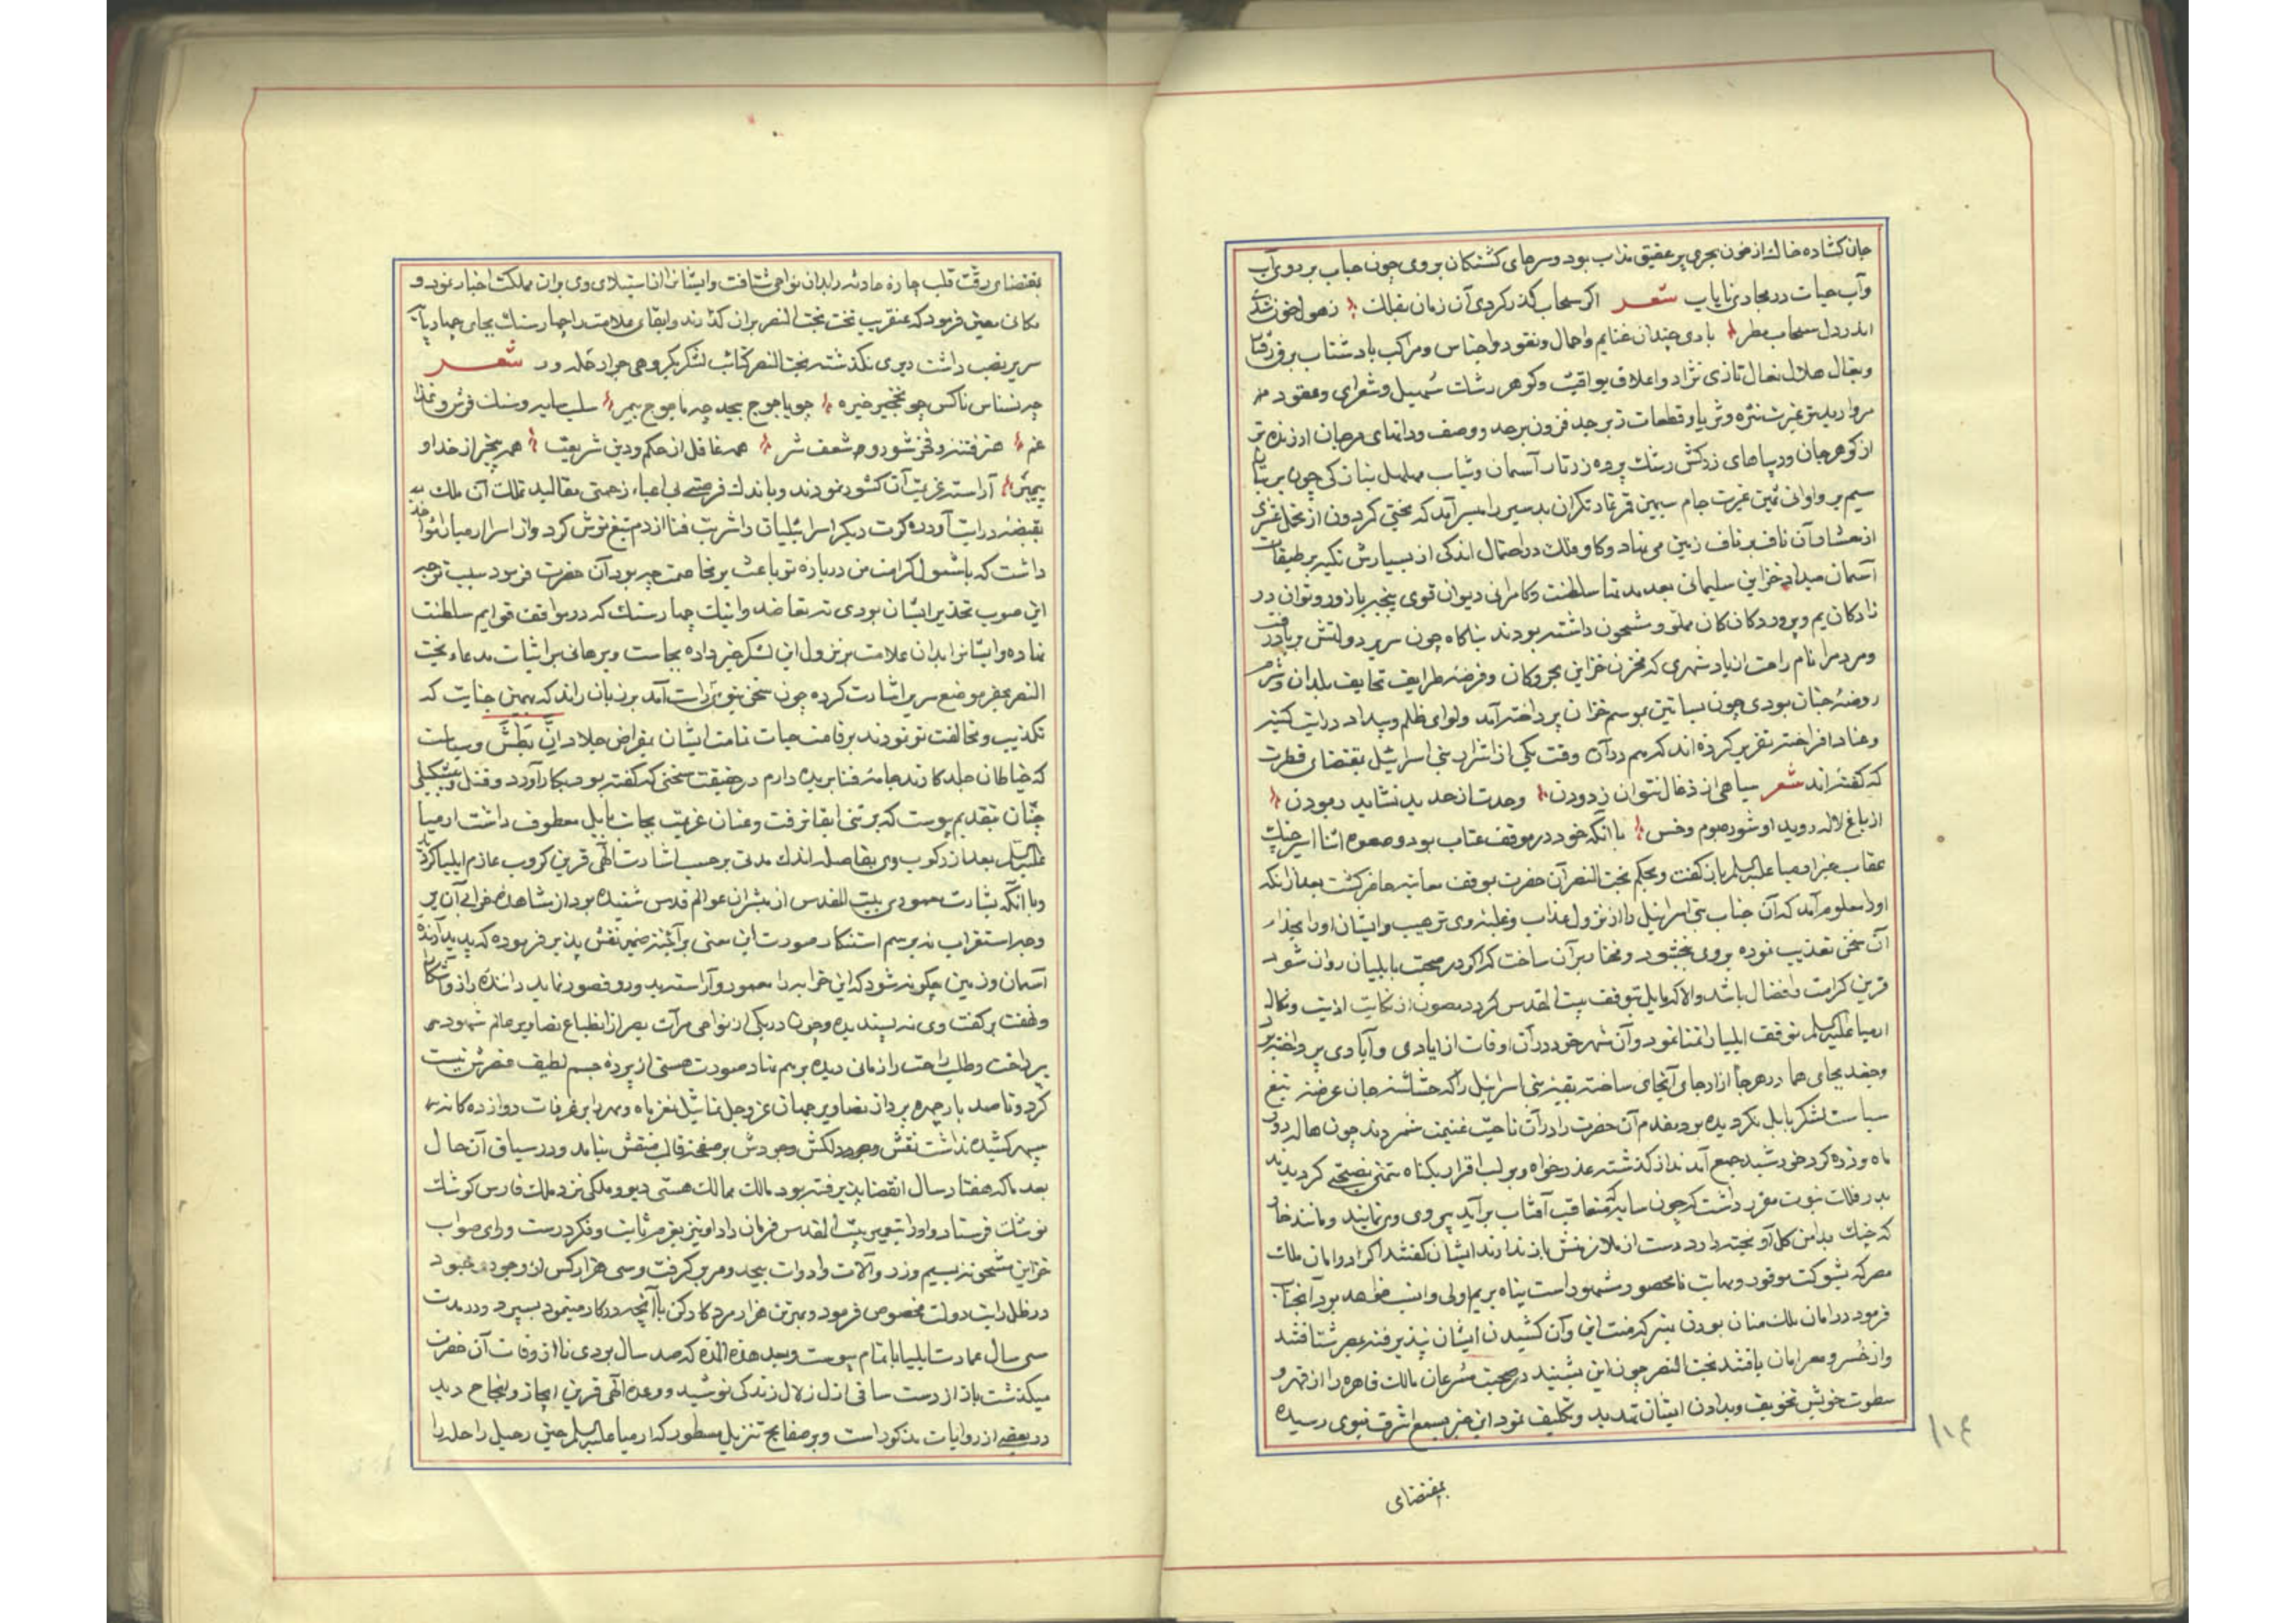 جان کشاده خاک از خون بحری پر عقیق مذاب بود و سرهای کشتکان بر وی چون حباب بر روی آب
وآب حیات در مجاری نایاب شعر اکر سحاب کذر کردی آن زمان بفلک زهول خون شدی
اندر دل سحاب مطر باری چندان غنایم واحمال ونقود واجناس ومراکب باد شتاب برق رفتار
وبغال هلال نعال تازی نژاد واعلاق یواقیت وکوهر سهیل وشعرای وعقود
مروارید غیرت نثره وثریا وقطعات زبرجد فزون برحد ووصف ودانهای مرجان ارزنده تر
از کوهر جان ودیباهای زرکش رشک پرده زرتار آسمان وثیاب مهلهل بنان کی چون پرنیان
سیم بر واوانی ثمین غیرت جام سیمین قمر عاد تکران بدسیر را میسر آمد که بختی کردون از تحمل عشری
از معشار آن ناف بر ناف زمین می نهاد وکاو فلک در احتمال اندکی از بسیارش تکیه بر طبقات
آسمان میداد خزاین سلیمانی بعد مدتها سلطنت وکامرانی دیوان قوی پنجه با زور وتوان در
زادکان یم وپروردکان کان مملو ومشحون داشته بودند بناکاه چون سریر دولتش بر باد رفت
ومردم را نام راحت از یاد شهری که مخزن خزاین بحر وکان وفرضه طرایف تحایف بلدان
روضه جنان بودی چون بساتین موسم خزان پرداخته آمد ولوای ظلم وبیداد درایت کینه
وعناد افراخته تقریر کرده اند که هم در آن وقت یکی از اشرار بنی اسرائیل بمقتضای فطرت
که کفته اند شعر سیاهی از ذغال نتوان زدودن وحدت از حدید نشاید ربودن
از باغ لاله روید او شوره بوم وخس با آنکه خود در موقف عتاب بود وصعوه آسا اسیر چنک
عقاب خبر ارمیا علیه السلم باز کفت وبحکم بخت النصر آن حضرت بموقف معاتبه حاضر کشت بعد از آنکه
اورا معلوم آمد که آن جناب بنی اسرائیل را از نزول عذاب وغلبه وی ترهیب وایشان اورا بجزاء
آن سخن تعذیب نموده بر وی بخشود ومختار بر آن ساخت که اکر در صحبت بابلیان روان شود
قرین کرامت وافضال باشد والا که مایل بتوقف بیت المقدس کردد مصون از نکایت اذیت ونکال
ارمیا علیه السلم توقف ایلیا تمنا نمود وآن شهر خود در آن اوقات از ایادی وآبادی پرداخته بود
وجغد بجای هما در هر جا از ارجای آنجای ساخته بقیه بنی اسرائیل را که حشاشه جان عرضه تیغ
سیاست لشکر بابل نکردیده بود مقدم آن حضرت را در آن ناحیت غنیمت شمردند چون هاله بر دور
ماه وذره کرد خورشید جمع آمدند از کذشته عذر خواه وبر لب اقرار بکناه متمنی نصحتی کردیدند
بدر فلک نبوت مقرر داشت که چون سایه که متعاقب آفتاب بر آید پیروی وی نمایند ومانند خار
که چنک بدامن کل آویخته دارد دست از ملازمتش باز ندارند ایشان کفتند اکر در امان ملک
مصر که بشوکت موفور ومهابت نامحصور مشهور است پناه بریم اولی وانسب خواهد بود آنجناب
فرمود در امان ملک منان بودن بهتر که منت این وآن کشیدن ایشان نپذیرفته بمصر شتافتند
واز خسرو مصر امان یافتند بخت النصر چون این بشنید در صحبت مسرعان مالک قاهره را از قهر و
سطوت خویش تخویف وبدادن ایشان تهدید وتکلیف نمود این خبر بمسمع اشرف نبوی رسیده
بمقتضای
۱۰۴
بمقتضای رقت قلب چاره حادثه را بدان نواحی شتافت وایشانرا از استیلای وی بر آن مملکت اخبار نمود و
مکانی معین فرمود که عنقریب تخت بخت النصر بر آن کذارند وابقای علامت را چهار سنک بجای چهار پایه
سریر نصب داشت دیری نکذشته بخت النصر کتائب لشکر بکروهی جراد شعر
چه نسناس ناکس چو نخجیر خیره چو یاجوج بیحد چه ماجوج بیمر
غم هنر فتنه وفخر شور وم شعف شر همه غافل از حکم ودین شریعت همه بیخبر از خدا و
پیمبر آراسته عزیمت آن کشور نمودند وباندک فرصتی بی اعباء زحمتی مقالید تملک آن ملک
بقبضه درایت آورده کرت دیکر اسرائیلیان را شربت فنا از دم تیغ نوش کرد واز اسرار ارمیا را مواخذه
داشت که با شمول کرامت من درباره تو باعث بر مخاصمت چه بود آن حضرت فرمود سبب توجه
این صوب تحذیر ایشان بودی نه تعاضد واینک چهار سنک که در مواقف قوایم سلطنت
نهاده وایشانرا بدان علامت بر نزول این لشکر خبر داده بجاست وبرهانی بر اثبات مدعاء بخت
النصر بحفر موضع سریر اشارت کرده چون سخن نبوی راست آمد بر زبان راند که بهمین جنایت که
تکذیب ومخالفت تو نمودند بر قامت حیات تمامت ایشان بمقراض جلادان بطش وسیاست
که خیاطان جلدکارند جامه فنا بریده دارم در حقیقت سخنی که کفته بود بکار آورد وقتل
چنان بتقدیم پیوست که بر تنی ابقا نرفت وعنان عزیمت بجانب بابل معطوف داشت ارمیا
علیه السلم بعد از رکوب وی بفاصله اندک مدتی بر حسب اشارت الهی قرین کروب عازم ایلیا کردید
وبا آنکه بشارت معموری بیت المقدس از مبشران عوالم قدس شنیده بود از مشاهده خرابی آن بر
وجه استغراب نه برسم استنکار صورت این معنی بر آئینه ضمیر نقش پذیر فرموده که پدید آرنده
آسمان وزمین چکونه شود که این خرابه را معمور وآراسته بدور وقصور نماید داننده راز
ونهفت بر کفت وی نه پسندیده وچون در یکی از نواحی مرآت بصر از انطباع تصاویر عالم شهود
پرداخت وطلب راحت را زمانی دیده بر هم نهاد صورت هستی از پرده جسم لطیف عنصرش نیست
کرد وتا صد بار چهره پرداز تصاویر جهان عز وجل تماثیل نغز ماه ومهر را بر غرفات دوازده کانه
سپهر کشیده نداشت نقش وجود دلکش وجودش بر صفحه قالب منقش نیامد ودر سیاق آن حال
بعد ما که هفتاد سال انقضا پذیرفته بود مالک ممالک هستی دیو وملکی نزد ملک فارس کوشک
نوشک فرستاد واورا بتعمیر بیت المقدس فرمان داد او نیز بعزم ثابت وفکر درست ورای صواب
خزاین مشحونه بسیم وزر وآلات وادوات بیحد ومر بر کرفت وسی هزار کس از وجوه جنود
در ظل رایت دولت مخصوص فرمود وبهترین هزار مرد کارکن با آنچه در کار مینمود بسپرد ودر مدت
سی سال عمارت ایلیا باتمام پیوست وبعد هذه المده که صد سال بودی تا از وفات آن حضرت
میکذشت باز از دست ساقی ازل زلال زندکی نوشید ووعده الهی قرین انجاز وانجاح دید
در بعضی از روایات مذکور است وبر صفایح تنزیل مسطور که ارمیا علیه السلم حین رحیل راحله را